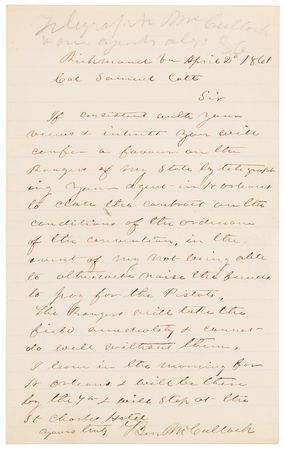 Telegraph Ben McCulloch
& our agents also
Richmond Va April 2d 1861
Col Samuel Colt
Sir
If consistent with your
views & interest you will
confer a favour on the
Rangers of my State by telegraph
ing your agent in N Orleans
to close the contract on the
conditions of the ordinance
of the convention, in the
event of my not being able
to otherwise raise the funds
to pay for the Pistols.
The Rangers will take the
field immediately & cannot
do well without them.
I leave in the morning for
N Orleans & will be there
by the 7th & will stop at the
St Charles Hotel
Yours truly Ben McCulloch